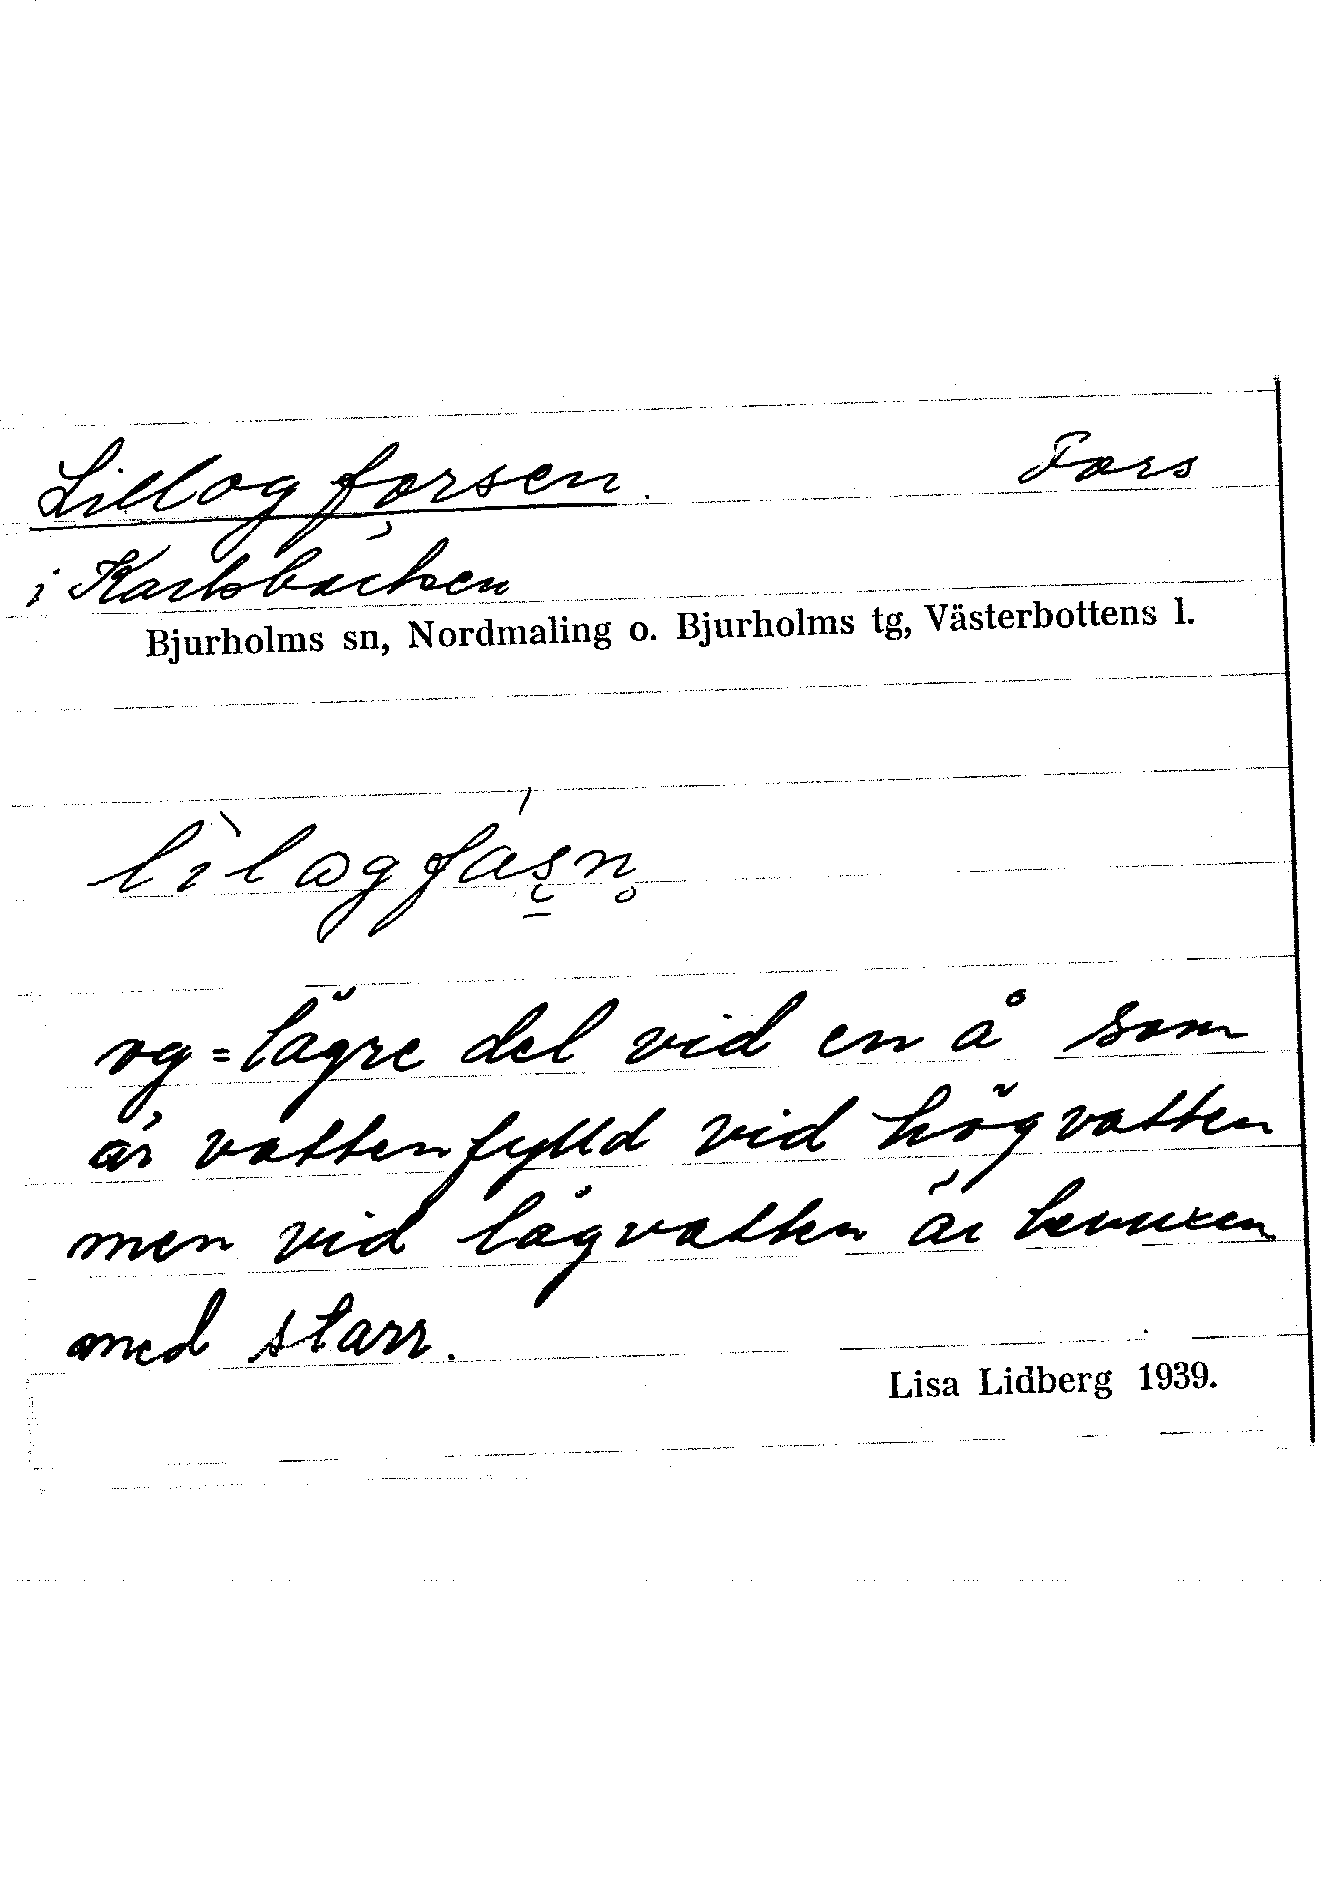 Lillogforsen. Fors
i Karlsbäcken
Bjurholms sn, Nordmaling o. Bjurholms tg, Västerbottens l.
og = lägre del vid en å som
är vattenfylld vid högvatten
men vid lågvatten är bevuxen
med starr.
Lisa Lidberg 1939.